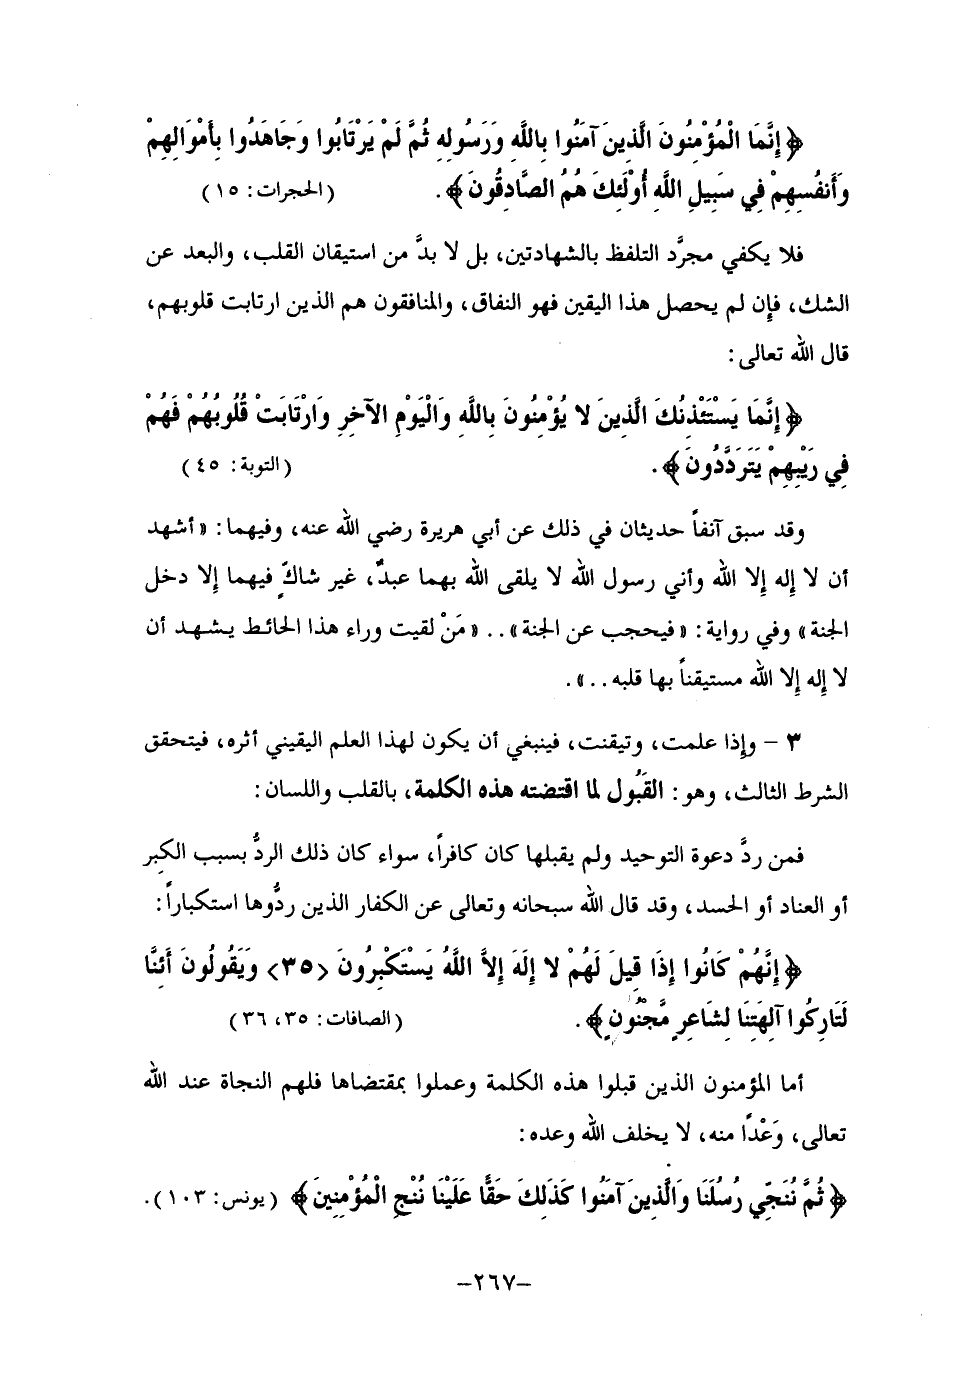 ﴿ إِنَّمَا الْمُؤْمِنُونَ الَّذِينَ آمَنُوا بِاللَّهِ وَرَسُولِهِ ثُمَّ لَمْ يَرْتَابُوا وَجَاهَدُوا بِأَمْوَالِهِمْ
وَأَنفُسِهِمْ فِي سَبِيلِ اللَّهِ أُوْلَئِكَ هُمُ الصَّادِقُونَ ﴾. (الحجرات: ١٥)
فلا يكفي مجرَّد التلفظ بالشهادتين، بل لا بدَّ من استيقان القلب، والبعد عن
الشك، فإن لم يحصل هذا اليقين فهو النفاق، والمنافقون هم الذين ارتابت قلوبهم،
قال الله تعالى:
﴿ إِنَّمَا يَسْتَئْذِنُكَ الَّذِينَ لا يُؤْمِنُونَ بِاللَّهِ وَالْيَوْمِ الآخِرِ وَارْتَابَتْ قُلُوبُهُمْ فَهُمْ
فِي رَيْبِهِمْ يَتَرَدَّدُونَ ﴾. (التوبة: ٤٥)
وقد سبق آنفاً حديثان في ذلك عن أبي هريرة رضي الله عنه، وفيهما: «أشهد
أن لا إله إلا الله وأني رسول الله لا يلقى الله بهما عبدٌ، غير شاكٍّ فيهما إلا دخل
الجنة» وفي رواية: «فيحجب عن الجنة».. «مَنْ لقيت وراء هذا الحائط يشهد أن
لا إله إلا الله مستيقناً بها قلبه..».
٣ - وإذا علمت، وتيقنت، فينبغي أن يكون لهذا العلم اليقيني أثره، فيتحقق
الشرط الثالث، وهو: القَبُول لما اقتضته هذه الكلمة، بالقلب واللسان:
فمن ردَّ دعوة التوحيد ولم يقبلها كان كافراً، سواء كان ذلك الردُّ بسبب الكبر
أو العناد أو الحسد، وقد قال الله سبحانه وتعالى عن الكفار الذين ردُّوها استكباراً:
﴿ إِنَّهُمْ كَانُوا إِذَا قِيلَ لَهُمْ لا إِلَهَ إِلاَّ اللَّهُ يَسْتَكْبِرُونَ <٣٥> وَيَقُولُونَ أَئِنَّا
لَتَارِكُوا آلِهَتِنَا لِشَاعِرٍ مَّجْنُونٍ ﴾. (الصافات: ٣٥، ٣٦)
أما المؤمنون الذين قبلوا هذه الكلمة وعملوا بمقتضاها فلهم النجاة عند الله
تعالى، وَعْدًا منه، لا يخلف الله وعده:
﴿ ثُمَّ نُنَجِّي رُسُلَنَا وَالَّذِينَ آمَنُوا كَذَلِكَ حَقًّا عَلَيْنَا نُنْجِ الْمُؤْمِنِينَ ﴾ (يونس: ١٠٣).
-٢٦٧-